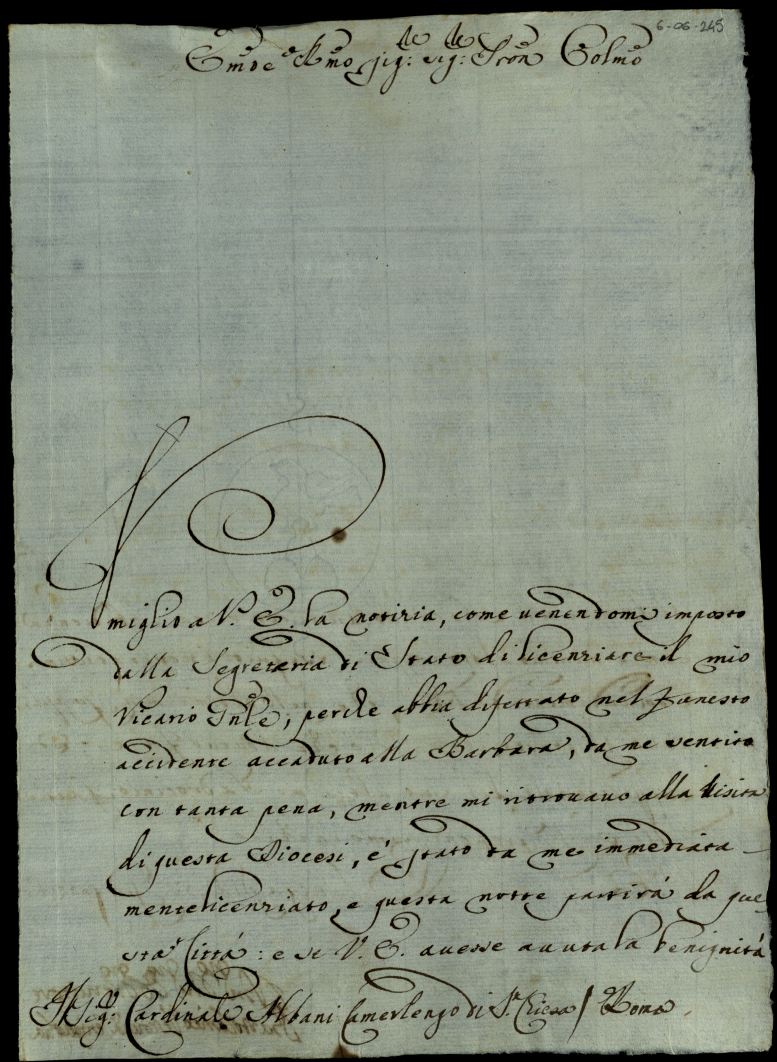 6-06-245
Em͂o e Rm͂o Sig:re Sig:re Pron͂ Colm͂o
Umiglio a V. E. la notizia, come venendomi imposto
dalla Segreteria di Stato di licenziare il mio
Vicario Gn͂le, perche abbia difettato nel funesto
accidente accaduto alla Barbara, da me sentito
con tanta pena, mentre mi ritrovavo alla Visita
di questa Diocesi, é stato da me immediata-
mente licenziato, e questa notte partirá da que
sta Cittá: e se V. E. avesse avuta la benignitá
Sig: Cardinale Albani Camerlengo di S.ta Chiesa / Roma.